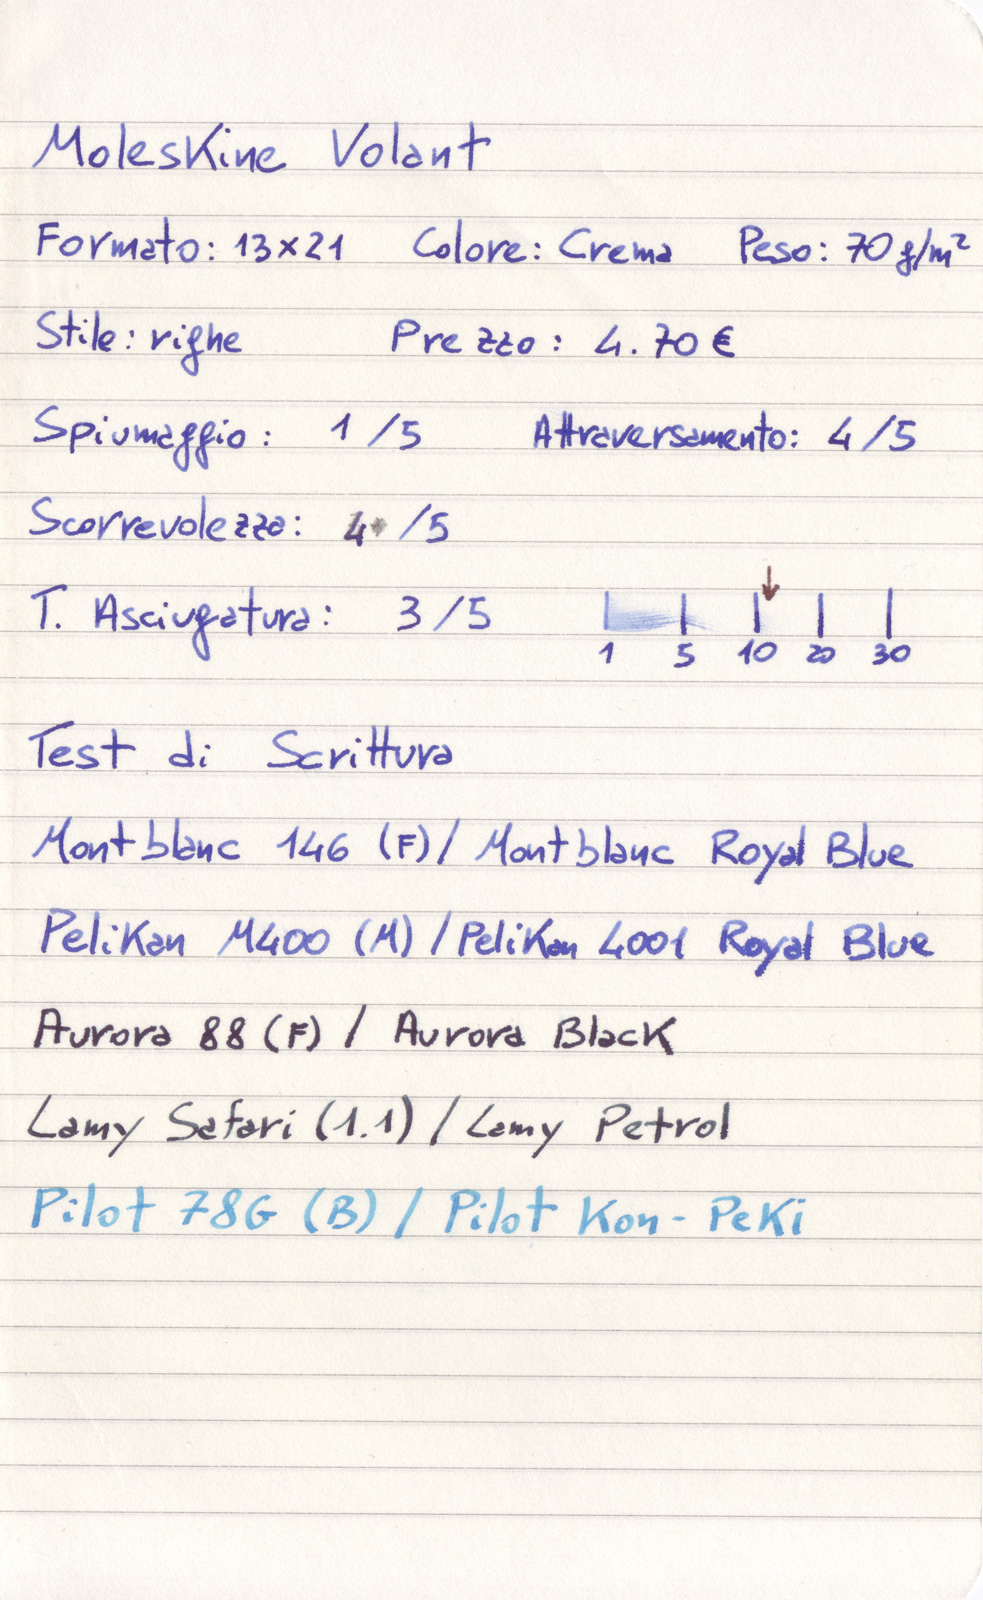 Moleskine Volant
Formato: 13x21 Colore: Crema Peso: 70 g/m²
Stile: righe Prezzo: 4.70 €
Spiumaggio: 1/5 Attraversamento: 4/5
Scorrevolezza: 4/5
T. Asciugatura: 3/5 1 5 10 20 30
Test di Scrittura
Montblanc 146 (F) / Montblanc Royal Blue
Pelikan M400 (M) / Pelikan 4001 Royal Blue
Aurora 88 (F) / Aurora Black
Lamy Safari (1.1) / Lamy Petrol
Pilot 78G (B) / Pilot Kon-Peki